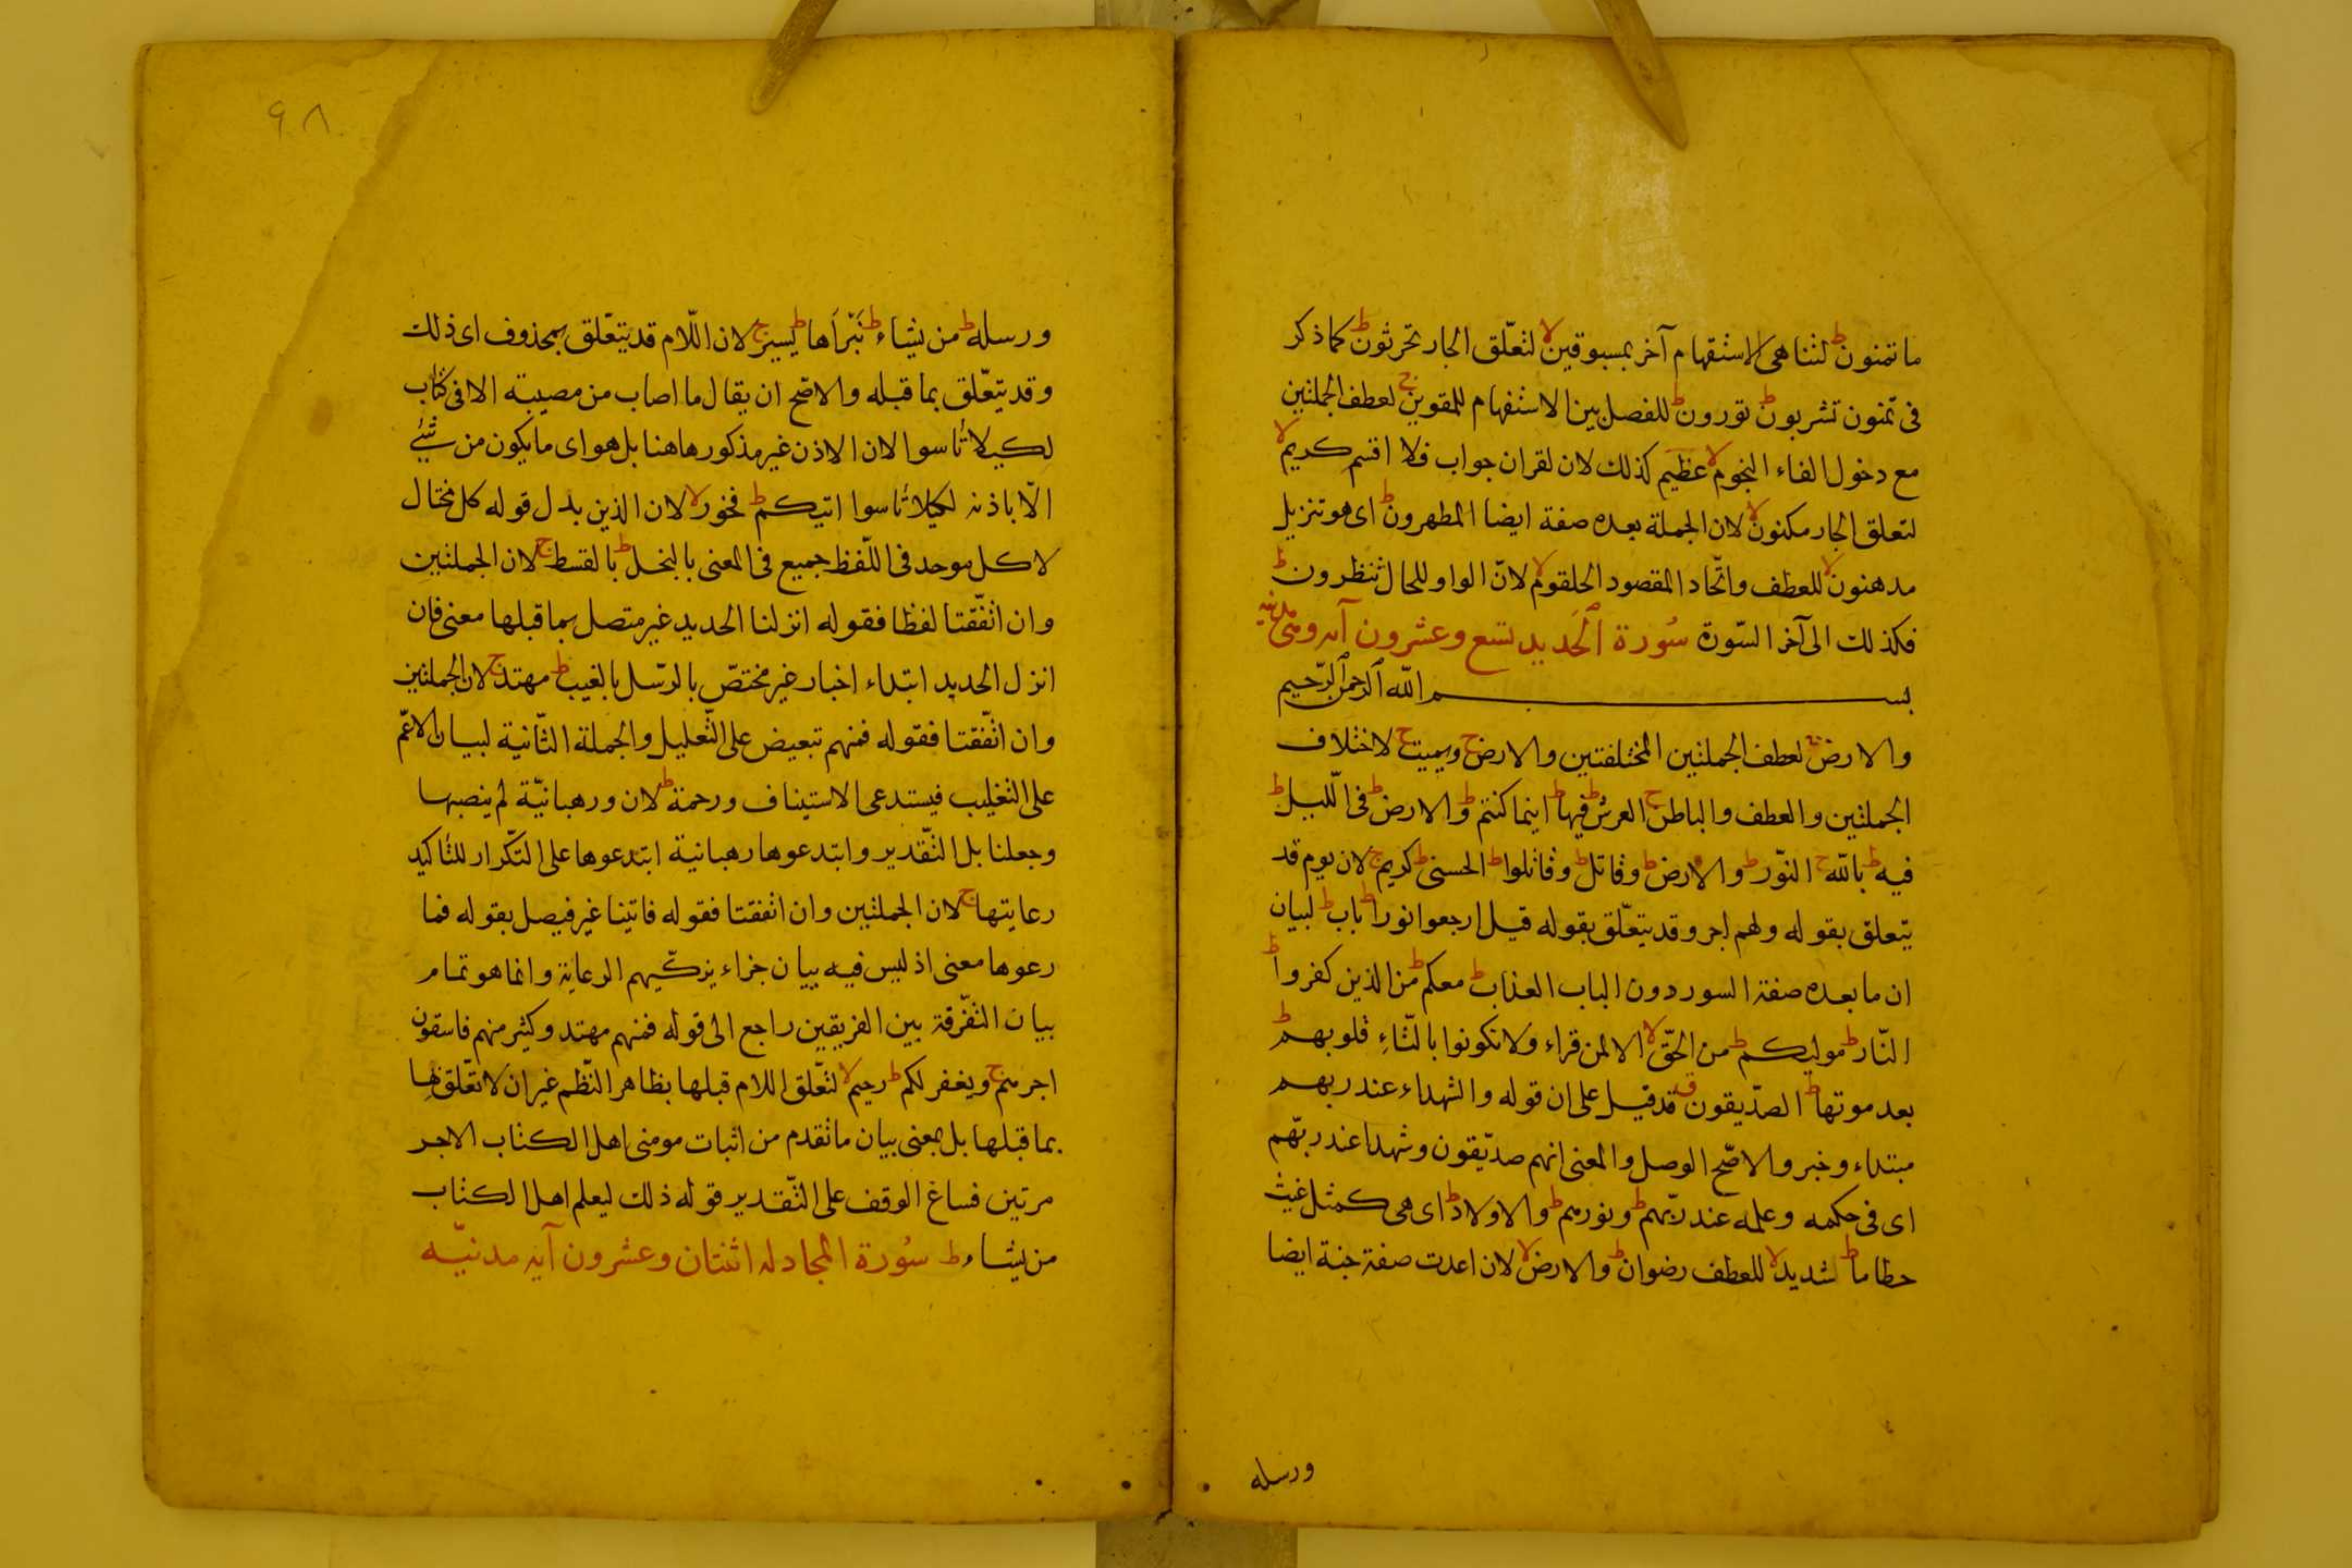 ما تمنونط لتناهى الاستفهام آخر بمسبوقينلا لتعلّق الجار تحرثونط كما ذكر
فى تمنون تشربونط تورونط للفصل بين الاستفهام للمقوينج لعطف الجملتين
مع دخول الفاء النجوملا عظيم كذلك لان لقران جواب فلا اقسم كريملا
لتعلق الجار مكنونلا لان الجملة بعده صفة ايضا المطهرونط اى هو تنزيل
مدهنونلا للعطف واتّحاد المقصود الحلقوملا لانّ الواو للحال تنظرونط
فكذلك الى آخر السّورة سُورة الحديد تسع وعشرون آيه ومى مدنيه
بسم الله الرحمن الرّحيم
والارضج لعطف الجملتين المختلفتين والارضج ويميتج لاختلاف
الجملتين والعطف والباطنج العرشط فيهاط اينما كنتمط والارضط فى اللّيلط
فيهط باللهج النّورط والارضط وقاتلط وقاتلواط الحسنىط كريمج لان يوم قد
يتعلق بقوله ولهم اجر وقد يتعّلق بقوله قيل ارجعوا نوراط بابط لبيان
ان ما بعده صفة السور دون الباب العذابط معكمط من الذين كفرواط
النّارط موليكمط من الحقّلا الا لمن قراء ولا تكونوا بالتّاءِ قلوبهمط
بعد موتهاط الصدّيقونق قد قيل على ان قوله والشهداء عند ربهم
مبتداء وخبر والاصّح الوصل والمعنى انهم صدّيقون وشهدا عند ربّهم
اى فى حكمه وعلمه عند ربّهمط ونورهمط والاولادط اى هى كمثل غيث
حطاماط شديدلا للعطف رضوانط والارضلا لان اعدت صفة جنة ايضا
ورسله
٩٨
ورسلهط من يشاءط نَبْرَاَهاط يسيرج لان اللّام قد يتعّلق بمحذوف اى ذلك
وقد يتعّلق بما قبله والاصّح ان يقال ما اصاب من مصيبة الا فى كتاب
لكيلا تأسوا لان الاذن غير مذكور هاهنا بل هو اى ما يكون من شيئ
الّا باذنه لكيلا تأسوا اتيكمط فخورلا لان الذين بدل قوله كل مختال
لا كل موحد فى اللّفظ جميع فى المعنى بالبخلط بالقسطج لان الجملتين
وان اتّفقتا لفظا فقوله انزلنا الحديد غير متصل بما قبلها معنى فان
انزل الحديد ابتداء اخبار غير مختصّ بالرّسل بالغيبط مهتدج لان الجملتين
وان اتّفقتا فقوله فمنهم تبعيض على التّعليل والجملة الثّانية لبيان الاعّم
على التغليب فيستدعى الاستيناف ورحمةط لان ورهبانيّة لم ينصبها
وجعلنا بل التّقدير وابتدعوها رهبانية ابتدعوها على التكّرار للتأكيد
رعايتهاج لان الجملتين وان اتفقتا فقوله فاتينا غير فيصل بقوله فما
رعوها معنى اذ ليس فيه بيان جزاء يزكّيهم الرعاية وانما هو تمام
بيان التفّرقة بين الفريقين راجع الى قوله فمنهم مهتد وكثير منهم فاسقون
اجرهمج ويغفر لكمط رحيملا لتعّلق اللام قبلها بظاهر النّظم غير ان لا تعّلق لها
بما قبلها بل بمعنى بيان ما تقدم من اثبات مومنى اهل الكتاب الاجر
مرتين فساغ الوقف على التّقدير قوله ذلك ليعلم اهل الكتاب
من يشاءط سُورة المجادله اثنتان وعشرون آيه مدنيّه